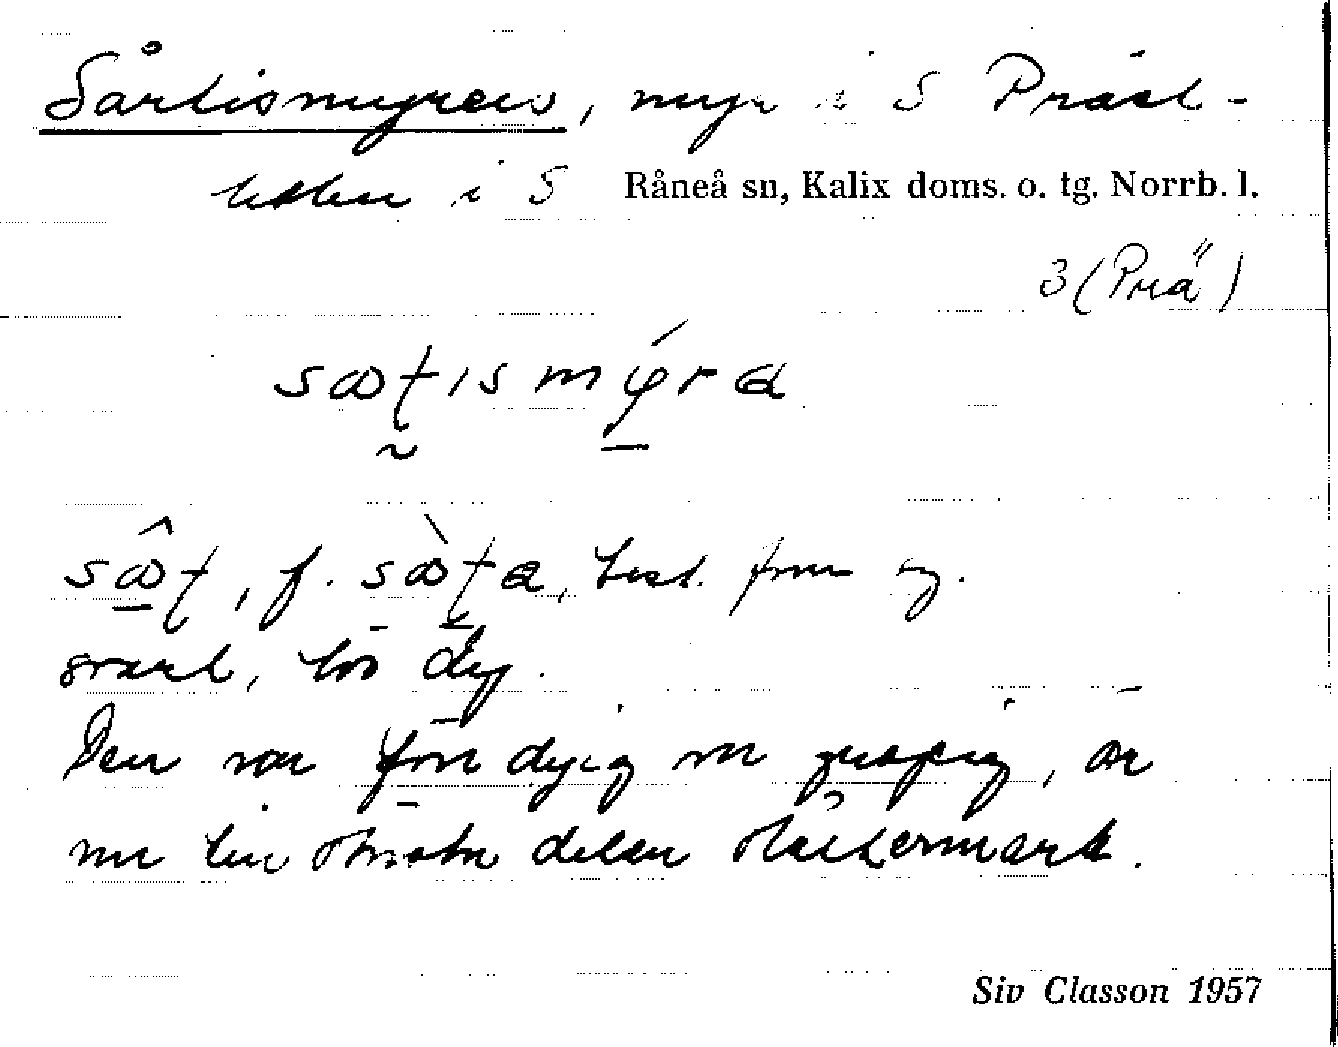 Sårtismyren, myr i S Präst-
heden i S Råneå sn, Kalix doms. o. tg. Norrb. l.
3 (Prä)
sɷtismýra
sɷ̂t, f. sɷ̀ta, best. form sg.
svart, lös dy.
Den var förr dyig och gropig, är
nu till största delen åkermark.
Siv Classon 1957